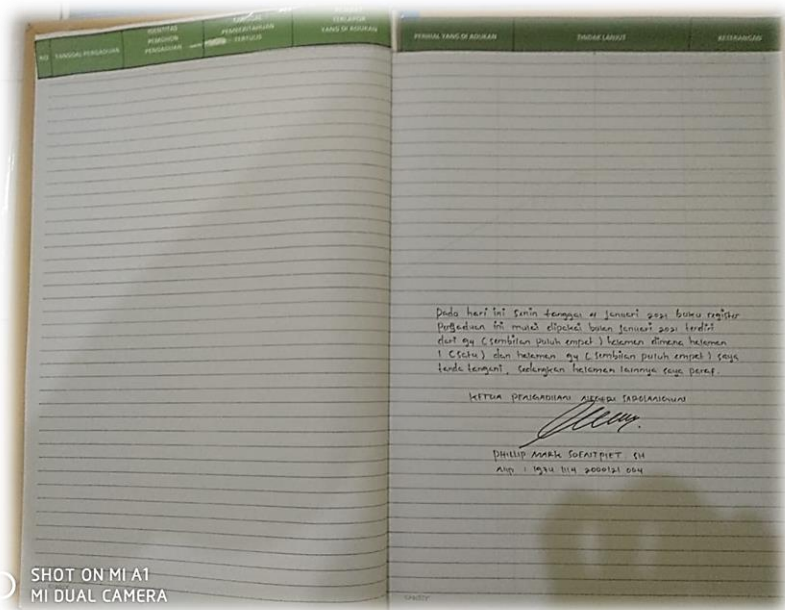 NO
TANGGAL PENGADUAN
IDENTITAS
PEMOHON
PENGADUAN
TANGGAL
PEMBERITAHUAN
TERTULIS
TERLAPOR
YANG DI ADUKAN
PERIHAL YANG DI ADUKAN
TINDAK LANJUT
KETERANGAN
Pada hari ini Senin tanggal 4 Januari 2021 buku register
Pengaduan ini mulai dipakai bulan Januari 2021 terdiri
dari 94 (sembilan puluh empat) halaman dimana halaman
1 (satu) dan halaman 94 (sembilan puluh empat) saya
tanda tangani, sedangkan halaman lainnya saya paraf.
KETUA PENGADILAN NEGERI SAROLANGUN
PHILLIP MARK SOENTPIET. SH
SHOT ON MI A1
MI DUAL CAMERA